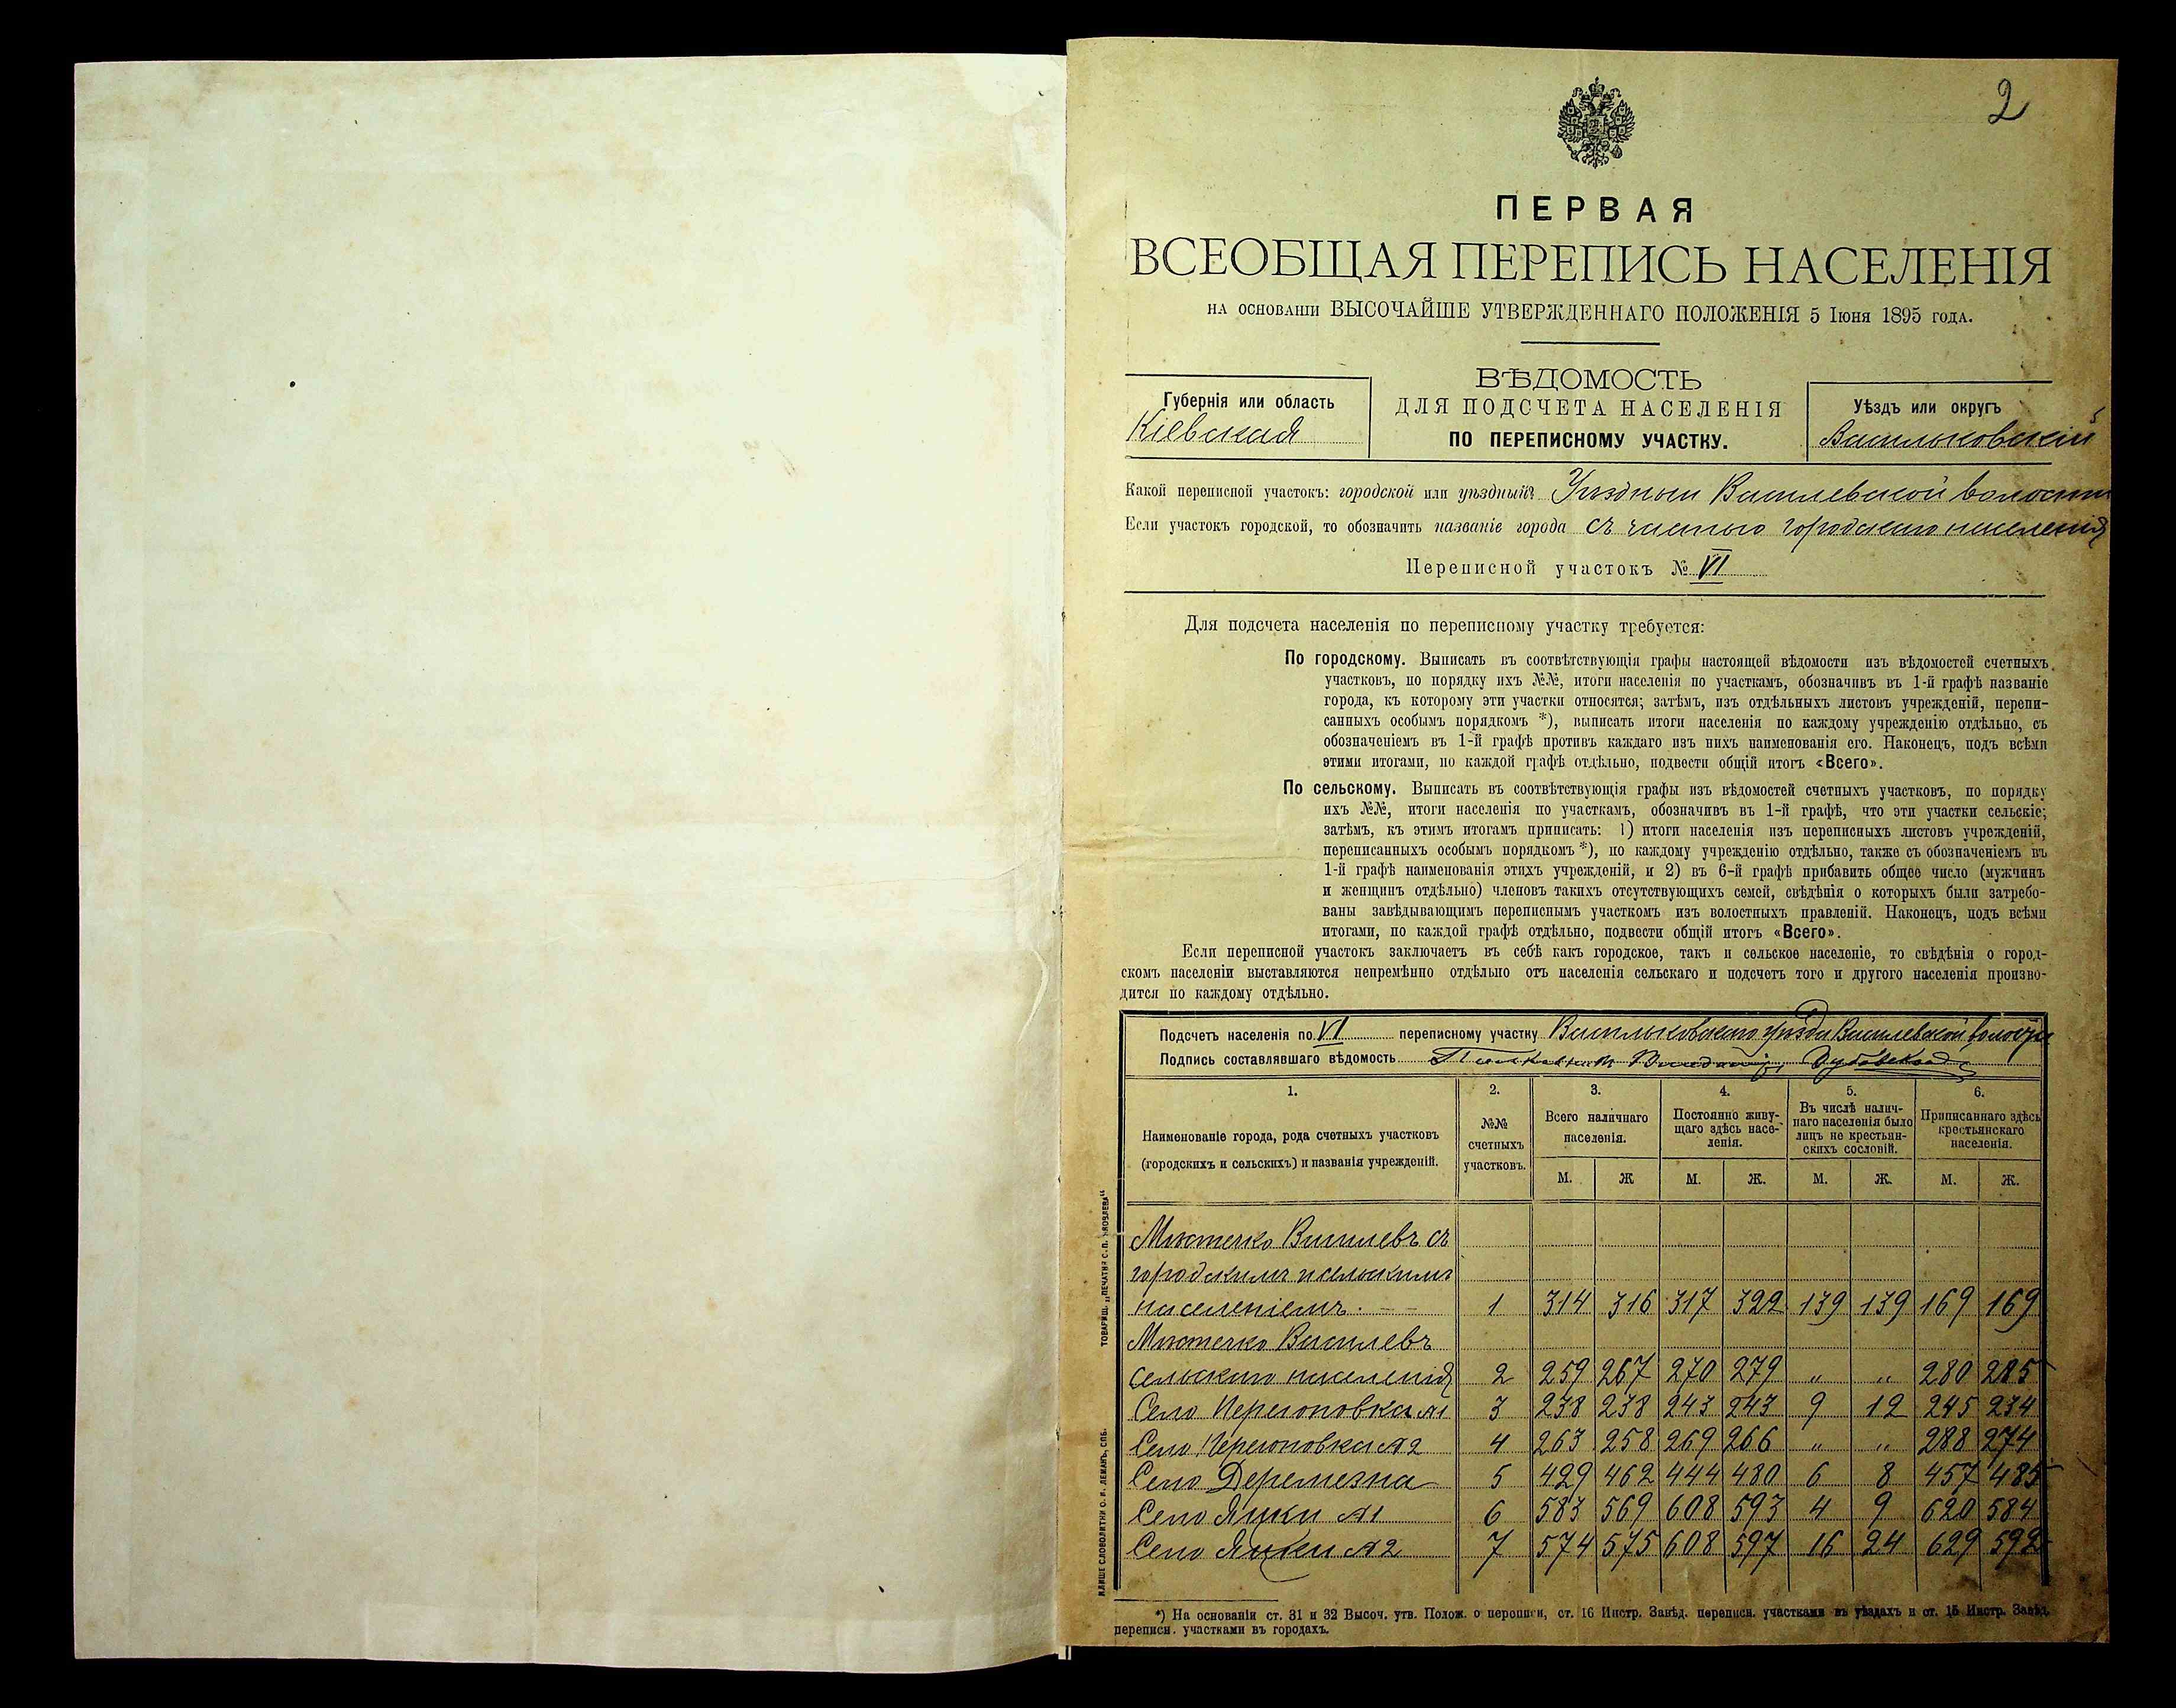 2
ПЕРВАЯ
ВСЕОБЩАЯ ПЕРЕПИСЬ НАСЕЛЕНІЯ
НА ОСНОВАНІИ ВЫСОЧАЙШЕ УТВЕРЖДЕННАГО ПОЛОЖЕНІЯ 5 Іюня 1895 ГОДА.
Губернія или область
Кіевская
ВѢДОМОСТЬ
ДЛЯ ПОДСЧЕТА НАСЕЛЕНІЯ
ПО ПЕРЕПИСНОМУ УЧАСТКУ.
Уѣздъ или округъ
Васильковскій
Какой переписной участокъ: городской или уѣздный? Уѣздный Василевской волости
Если участокъ городской, то обозначить названіе города съ частью городскаго населенія
Переписной участокъ № VI
Для подсчета населенія по переписному участку требуется:
По городскому. Выписать въ соотвѣтствующія графы настоящей вѣдомости изъ вѣдомостей счетныхъ
участковъ, по порядку ихъ №№, итоги населенія по участкамъ, обозначивъ въ 1-й графѣ названіе
города, къ которому эти участки относятся; затѣмъ, изъ отдѣльныхъ листовъ учрежденій, перепи-
санныхъ особымъ порядкомъ *), выписать итоги населенія по каждому учрежденію отдѣльно, съ
обозначеніемъ въ 1-й графѣ противъ каждаго изъ нихъ наименованія его. Наконецъ, подъ всѣми
этими итогами, по каждой графѣ отдѣльно, подвести общій итогъ «Всего».
По сельскому. Выписать въ соотвѣтствующія графы изъ вѣдомостей счетныхъ участковъ, по порядку
ихъ №№, итоги населенія по участкамъ, обозначивъ въ 1-й графѣ, что эти участки сельскіе;
затѣмъ, къ этимъ итогамъ приписать: 1) итоги населенія изъ переписныхъ листовъ учрежденій,
переписанныхъ особымъ порядкомъ *), по каждому учрежденію отдѣльно, также съ обозначеніемъ въ
1-й графѣ наименованія этихъ учрежденій, и 2) въ 6-й графѣ прибавить общее число (мужчинъ
и женщинъ отдѣльно) членовъ такихъ отсутствующихъ семей, свѣдѣнія о которыхъ были затребо-
ваны завѣдывающимъ переписнымъ участкомъ изъ волостныхъ правленій. Наконецъ, подъ всѣми
итогами, по каждой графѣ отдѣльно, подвести общій итогъ «Всего».
Если переписной участокъ заключаетъ въ себѣ какъ городское, такъ и сельское населеніе, то свѣдѣнія о город-
скомъ населеніи выставляются непремѣнно отдѣльно отъ населенія сельскаго и подсчетъ того и другого населенія произво-
дится по каждому отдѣльно.
Подсчетъ населенія по VI переписному участку Васильковскаго уѣзда Василевской волости
Подпись составлявшаго вѣдомость
1. 2. 3. 4. 5. 6.
Наименованіе города, рода счетныхъ участковъ
(городскихъ и сельскихъ) и названія учрежденій.
№№
счетныхъ
участковъ.
Всего наличнаго
населенія.
Постоянно живу-
щаго здѣсь насе-
ленія.
Въ числѣ налич-
наго населенія было
лицъ не крестьян-
скихъ сословій.
Приписаннаго здѣсь
крестьянскаго
населенія.
М. Ж М. Ж. М. Ж. М. Ж.
Мѣстечко Василевъ съ
городскимъ и сельскимъ
населеніемъ. 1 314 316 317 322 139 139 169 169
Мѣстечко Василевъ
сельскаго населенія 2 259 267 270 279 " " 280 285
Село Перегоновка №1 3 238 238 243 243 9 12 245 234
Село Перегоновка №2 4 263 258 269 266 " " 288 274
Село Деремезна 5 429 462 444 480 6 8 457 485
Село Яцки №1 6 583 569 608 593 4 9 620 584
Село Яцки №2 7 574 575 608 597 16 24 629 592
*) На основаніи ст. 31 и 32 Высоч. утв. Полож. о переписи, ст. 16 Инстр. Завѣд. переписн. участками въ уѣздахъ и ст. 15 Инстр. Завѣд.
переписн. участками въ городахъ.
ТОВАРИЩ. „ПЕЧАТНЯ С. П. ЯКОВЛЕВА“
КЛИШЕ СЛОВОЛИТНИ О. И. ЛЕМАНЪ, СПБ.